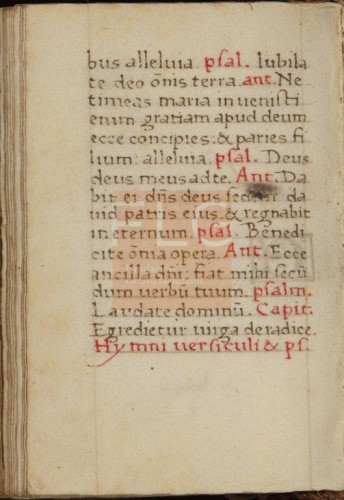 bus alleluia. psal. Iubila
te deo õnis terra. ant. Ne
timeas maria invenisti
enim gratiam apud deum
ecce concipies: & paries fi
lium: alleluia. psal. Deus
deus meus ad te. Ant. Da
bit ei dñs deus sedem da
uid patris eius, & regnabit
in eternum. psal. Benedi
cite õnia opera. Ant. Ecce
ancilla dñi: fiat mihi secũ
dum verbũ tuum. psalm.
Laudate dominũ. Capit.
Egredietur uirga de radice.
Hymni versiculi & ps.